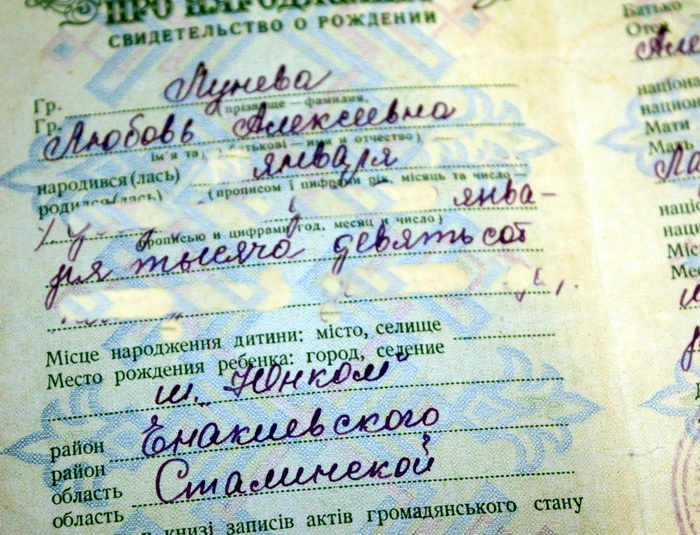 ПРО НАРОДЖЕННЯ
СВИДЕТЕЛЬСТВО О РОЖДЕНИИ
Гр. Лунева
(прізвище — фамилия,
Гр. Любовь Алексеевна
ім'я та по батькові — имя и отчество)
народився(лась) января
(прописом і цифрами рік, місяць та число —
родился(лась) янва-
прописью и цифрами год, месяц и число)
ря тысяча девятьсот
Місце народження дитини: місто, селище
Место рождения ребенка: город, селение
ш. "Юнком"
район Енакиевского
район
область Сталинской
область
в книзі записів актів громадянського стану
Батько
Мати
Мать